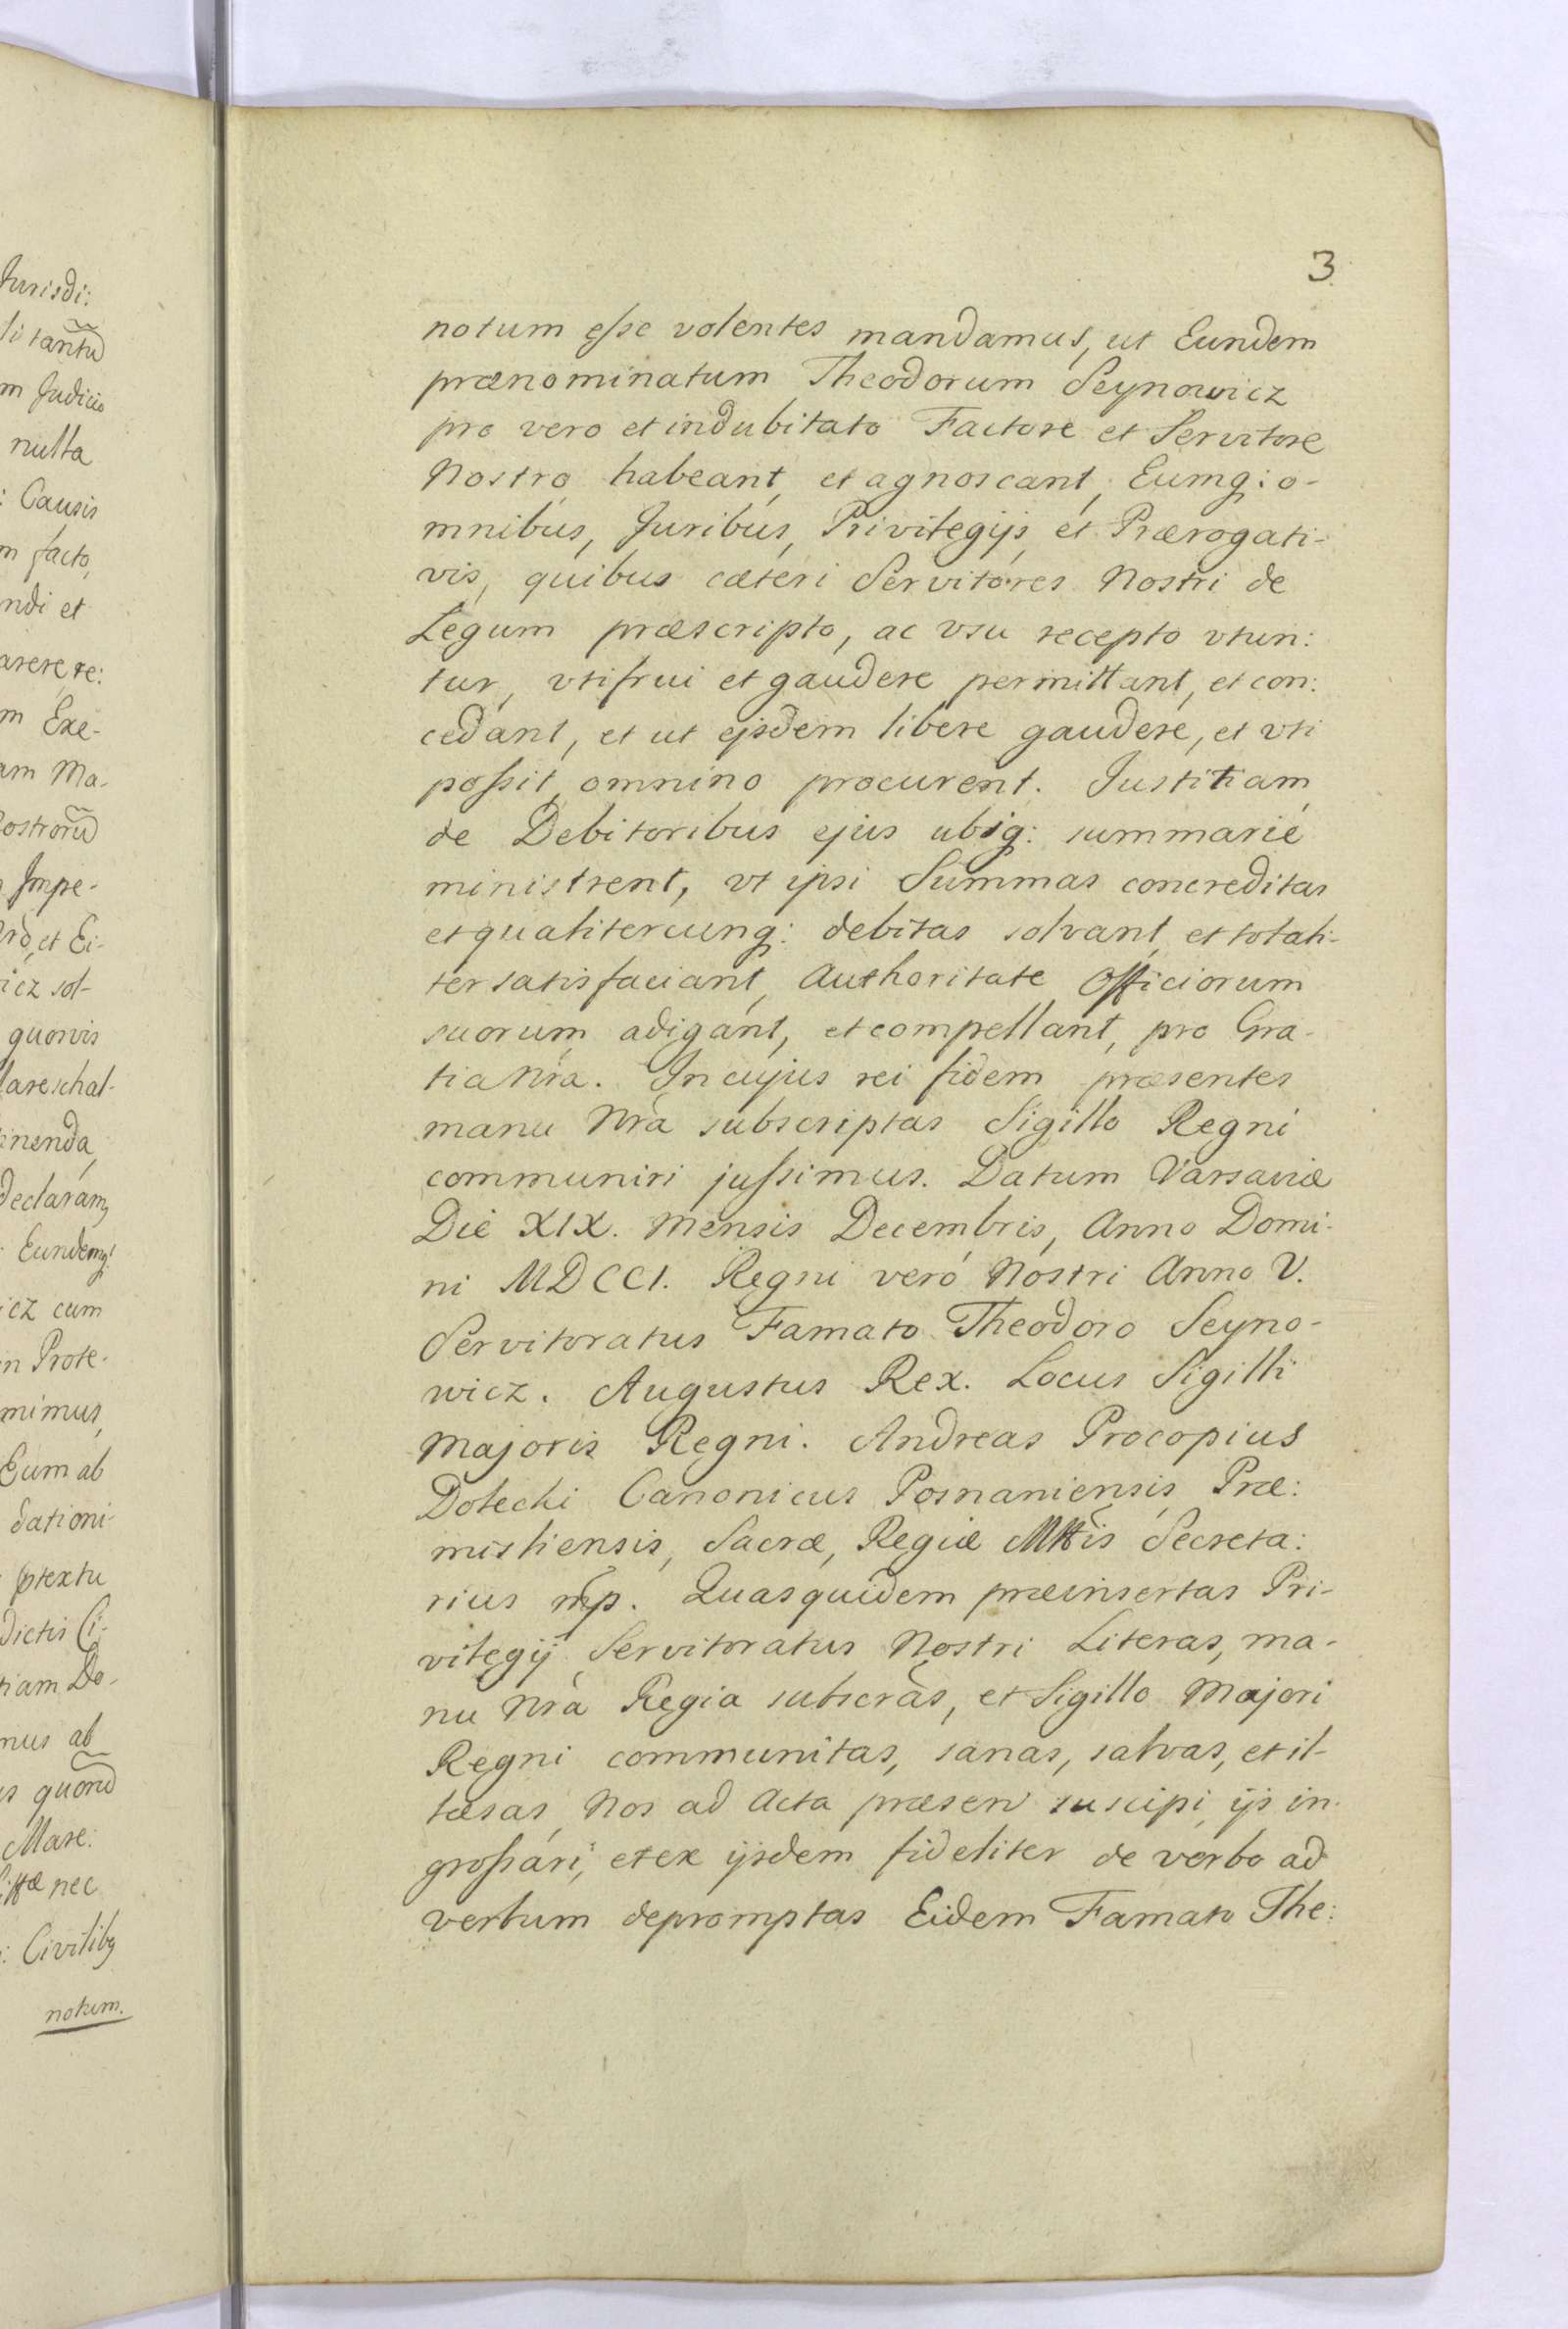 Jurisdi:
li tantu
m Judicio
nulla
: Causis
m facto,
ndi et
arere re:
m Exe-
am Ma-
ostroru
Impe-
et Ei-
icz sol-
quorvis
lareschal-
inenda,
declaram,
: Eundemq:
icz cum
in Prote-
mimus,
Eum ab
dationi-
ptextu
dictis Ci-
tiam Do-
mus ab
s quoru
Mare:
nec
: Civilibq
notum.
3.
notum esse volentes mandamus, ut Eundem
prænominatum Theodorum Seynowicz
pro vero et indubitato Factore et Servitore
Nostro habeant, et agnoscant, Eumq: o-
mnibus, Juribus, Privilegijs, et Prærogati-
vis, quibus cæteri Servitores Nostri de
Legum præscripto, ac vsu recepto vtun:
tur, vtifrui et gaudere permittant, et con:
cedant, et ut ejsdem libere gaudere, et vti
possit, omnino procurent. Justitiam
de Debitoribus ejus ubiq: summarie
ministrent, vt ipsi Summas concreditas
et qualitercunq: debitas solvant, et totali-
ter satisfaciant, Authoritate Officiorum
suorum adigant, et compellant, pro Gra-
tia Nrã. In cujus rei fidem præsentes
manu Nrã subscriptas Sigillo Regni
communiri jussimus. Datum Varsaviæ
Die XIX. Mensis Decembris, Anno Domi-
ni MDCCI. Regni vero Nostri Anno V.
Servitoratus Famato Theodoro Seyno-
wicz. Augustus Rex. Locus Sigilli
Majoris Regni. Andreas Procopius
Dolecki Canonicus Posnaniensis, Præ:
misliensis, Sacræ, Regiæ Mttis Secreta:
rius mp. Quasquidem præinsertas Pri-
vilegij Servitoratus Nostri Literas, ma-
nu Nrã Regia subscrãs, et Sigillo Majori
Regni communitas, sanas, salvas, et il-
læsas, Nos ad Acta præsen suscipi, ijs in-
grossari, et ex ijsdem fideliter de verbo ad
verbum depromptas Eidem Famato The: